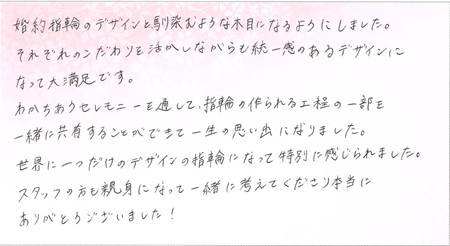 婚約指輪のデザインと馴染むような木目になるようにしました。
それぞれのこだわりを活かしながらも統一感のあるデザインに
なって大満足です。
わかちあうセレモニーを通して、指輪の作られる工程の一部を
一緒に共有することができて一生の思い出になりました。
世界に一つだけのデザインの指輪になって特別に感じられました。
スタッフの方も親身になって一緒に考えてくださり本当に
ありがとうございました！